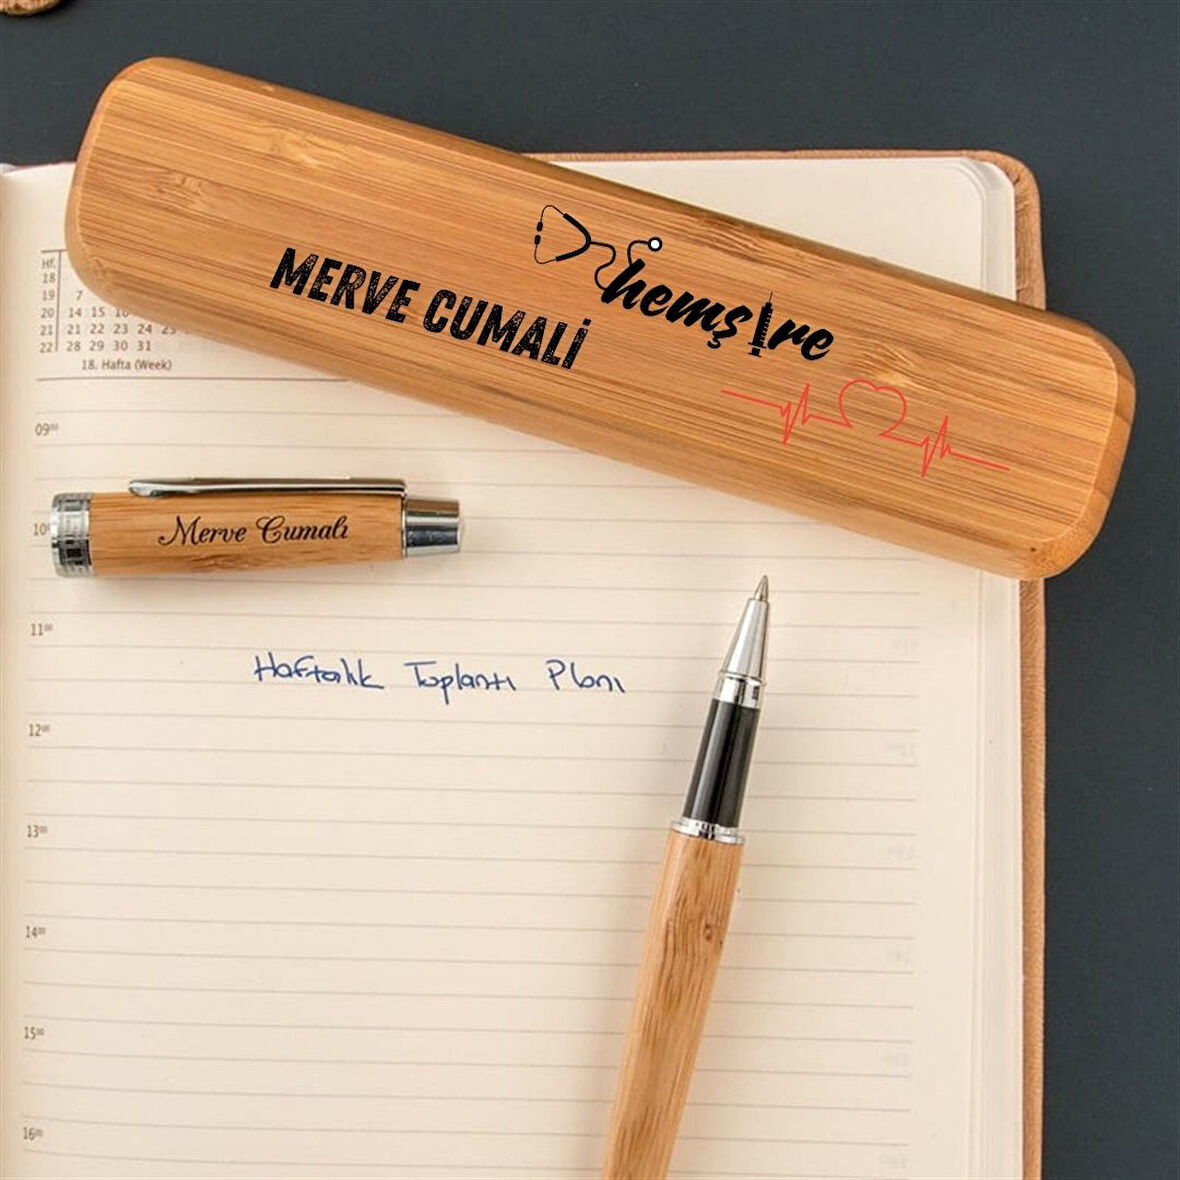 MERVE CUMALİ
hemşire
Hf.
18
19 7
20 14 15 16
21 21 22 23 24 25
22 28 29 30 31
18. Hafta (Week)
09⁰⁰
10
Merve Cumalı
11⁰⁰
Haftalık Toplantı Planı
12⁰⁰
13⁰⁰
14⁰⁰
15⁰⁰
16⁰⁰